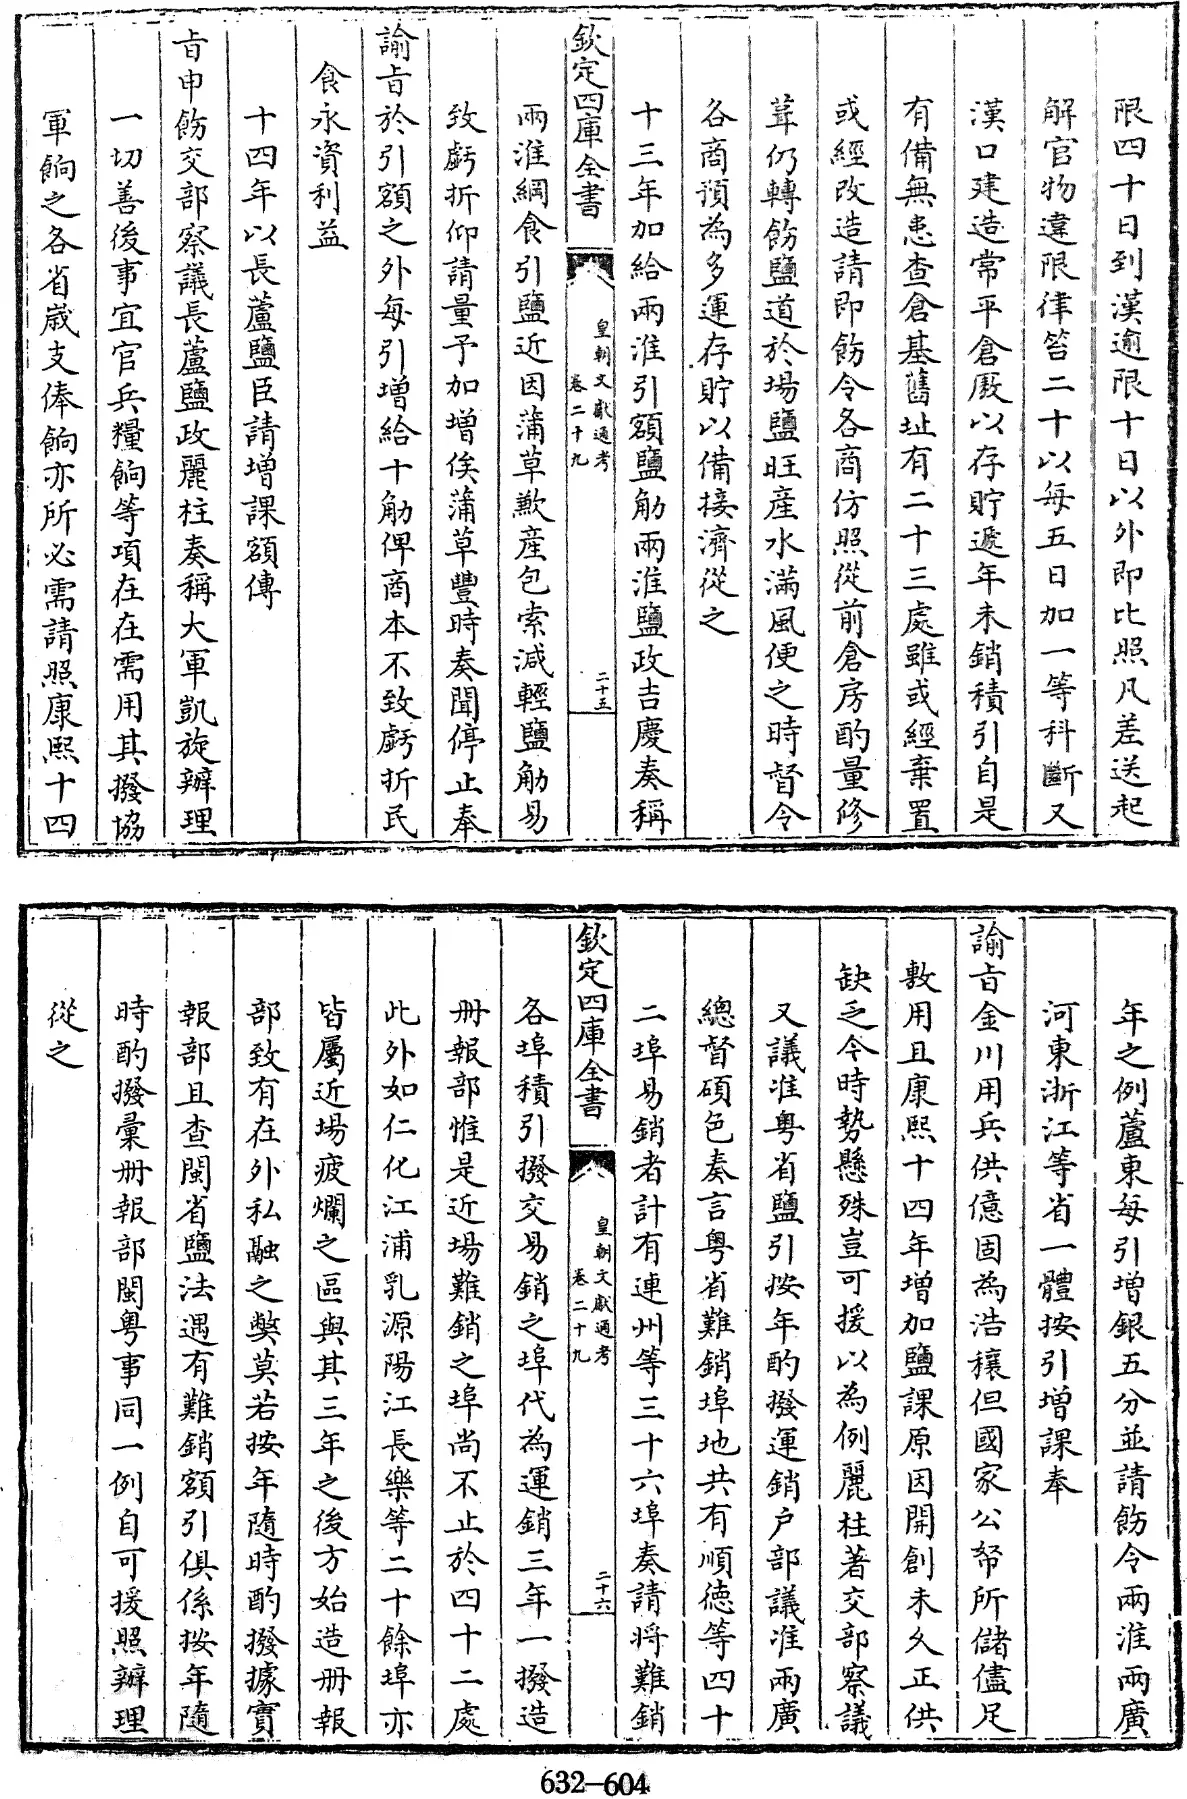 限四十日到漢逾限十日以外即比照凡差送起
解官物違限律笞二十以每五日加一等科斷又
漢口建造常平倉厫以存貯遞年未銷積引自是
有備無患查倉基舊址有二十三處雖或經棄置
或經改造請即飭令各商仿照從前倉房酌量修
葺仍轉飭鹽道於塲鹽旺產水滿風便之時督令
各商預為多運存貯以備接濟從之
十三年加給兩淮引額鹽觔兩淮鹽政吉慶奏稱
欽定四庫全書
皇朝文獻通考
卷二十九
二十五
兩淮綱食引鹽近因蒲草歉產包索減輕鹽觔易
致虧折仰請量予加增俟蒲草豐時奏聞停止奉
諭旨於引額之外每引增給十觔俾商本不致虧折民
食永資利益
十四年以長蘆鹽臣請增課額傳
旨申飭交部察議長蘆鹽政麗柱奏稱大軍凱旋辦理
一切善後事宜官兵糧餉等項在在需用其撥協
軍餉之各省歲支俸餉亦所必需請照康熙十四
年之例蘆東每引增銀五分並請飭令兩淮兩廣
河東浙江等省一體按引增課奉
諭旨金川用兵供億固為浩穰但國家公帑所儲儘足
敷用且康熙十四年增加鹽課原因開創未久正供
缺乏今時勢懸殊豈可援以為例麗柱著交部察議
又議准粵省鹽引按年酌撥運銷户部議准兩廣
總督碩色奏言粵省難銷埠地共有順德等四十
二埠易銷者計有連州等三十六埠奏請將難銷
欽定四庫全書
皇朝文獻通考
卷二十九
二十六
各埠積引撥交易銷之埠代為運銷三年一撥造
册報部惟是近場難銷之埠尚不止於四十二處
此外如仁化江浦乳源陽江長樂等二十餘埠亦
皆屬近場疲爛之區與其三年之後方始造册報
部致有在外私融之獘莫若按年隨時酌撥據實
報部且查閩省鹽法遇有難銷額引俱係按年隨
時酌撥彙册報部閩粵事同一例自可援照辦理
從之
632-604